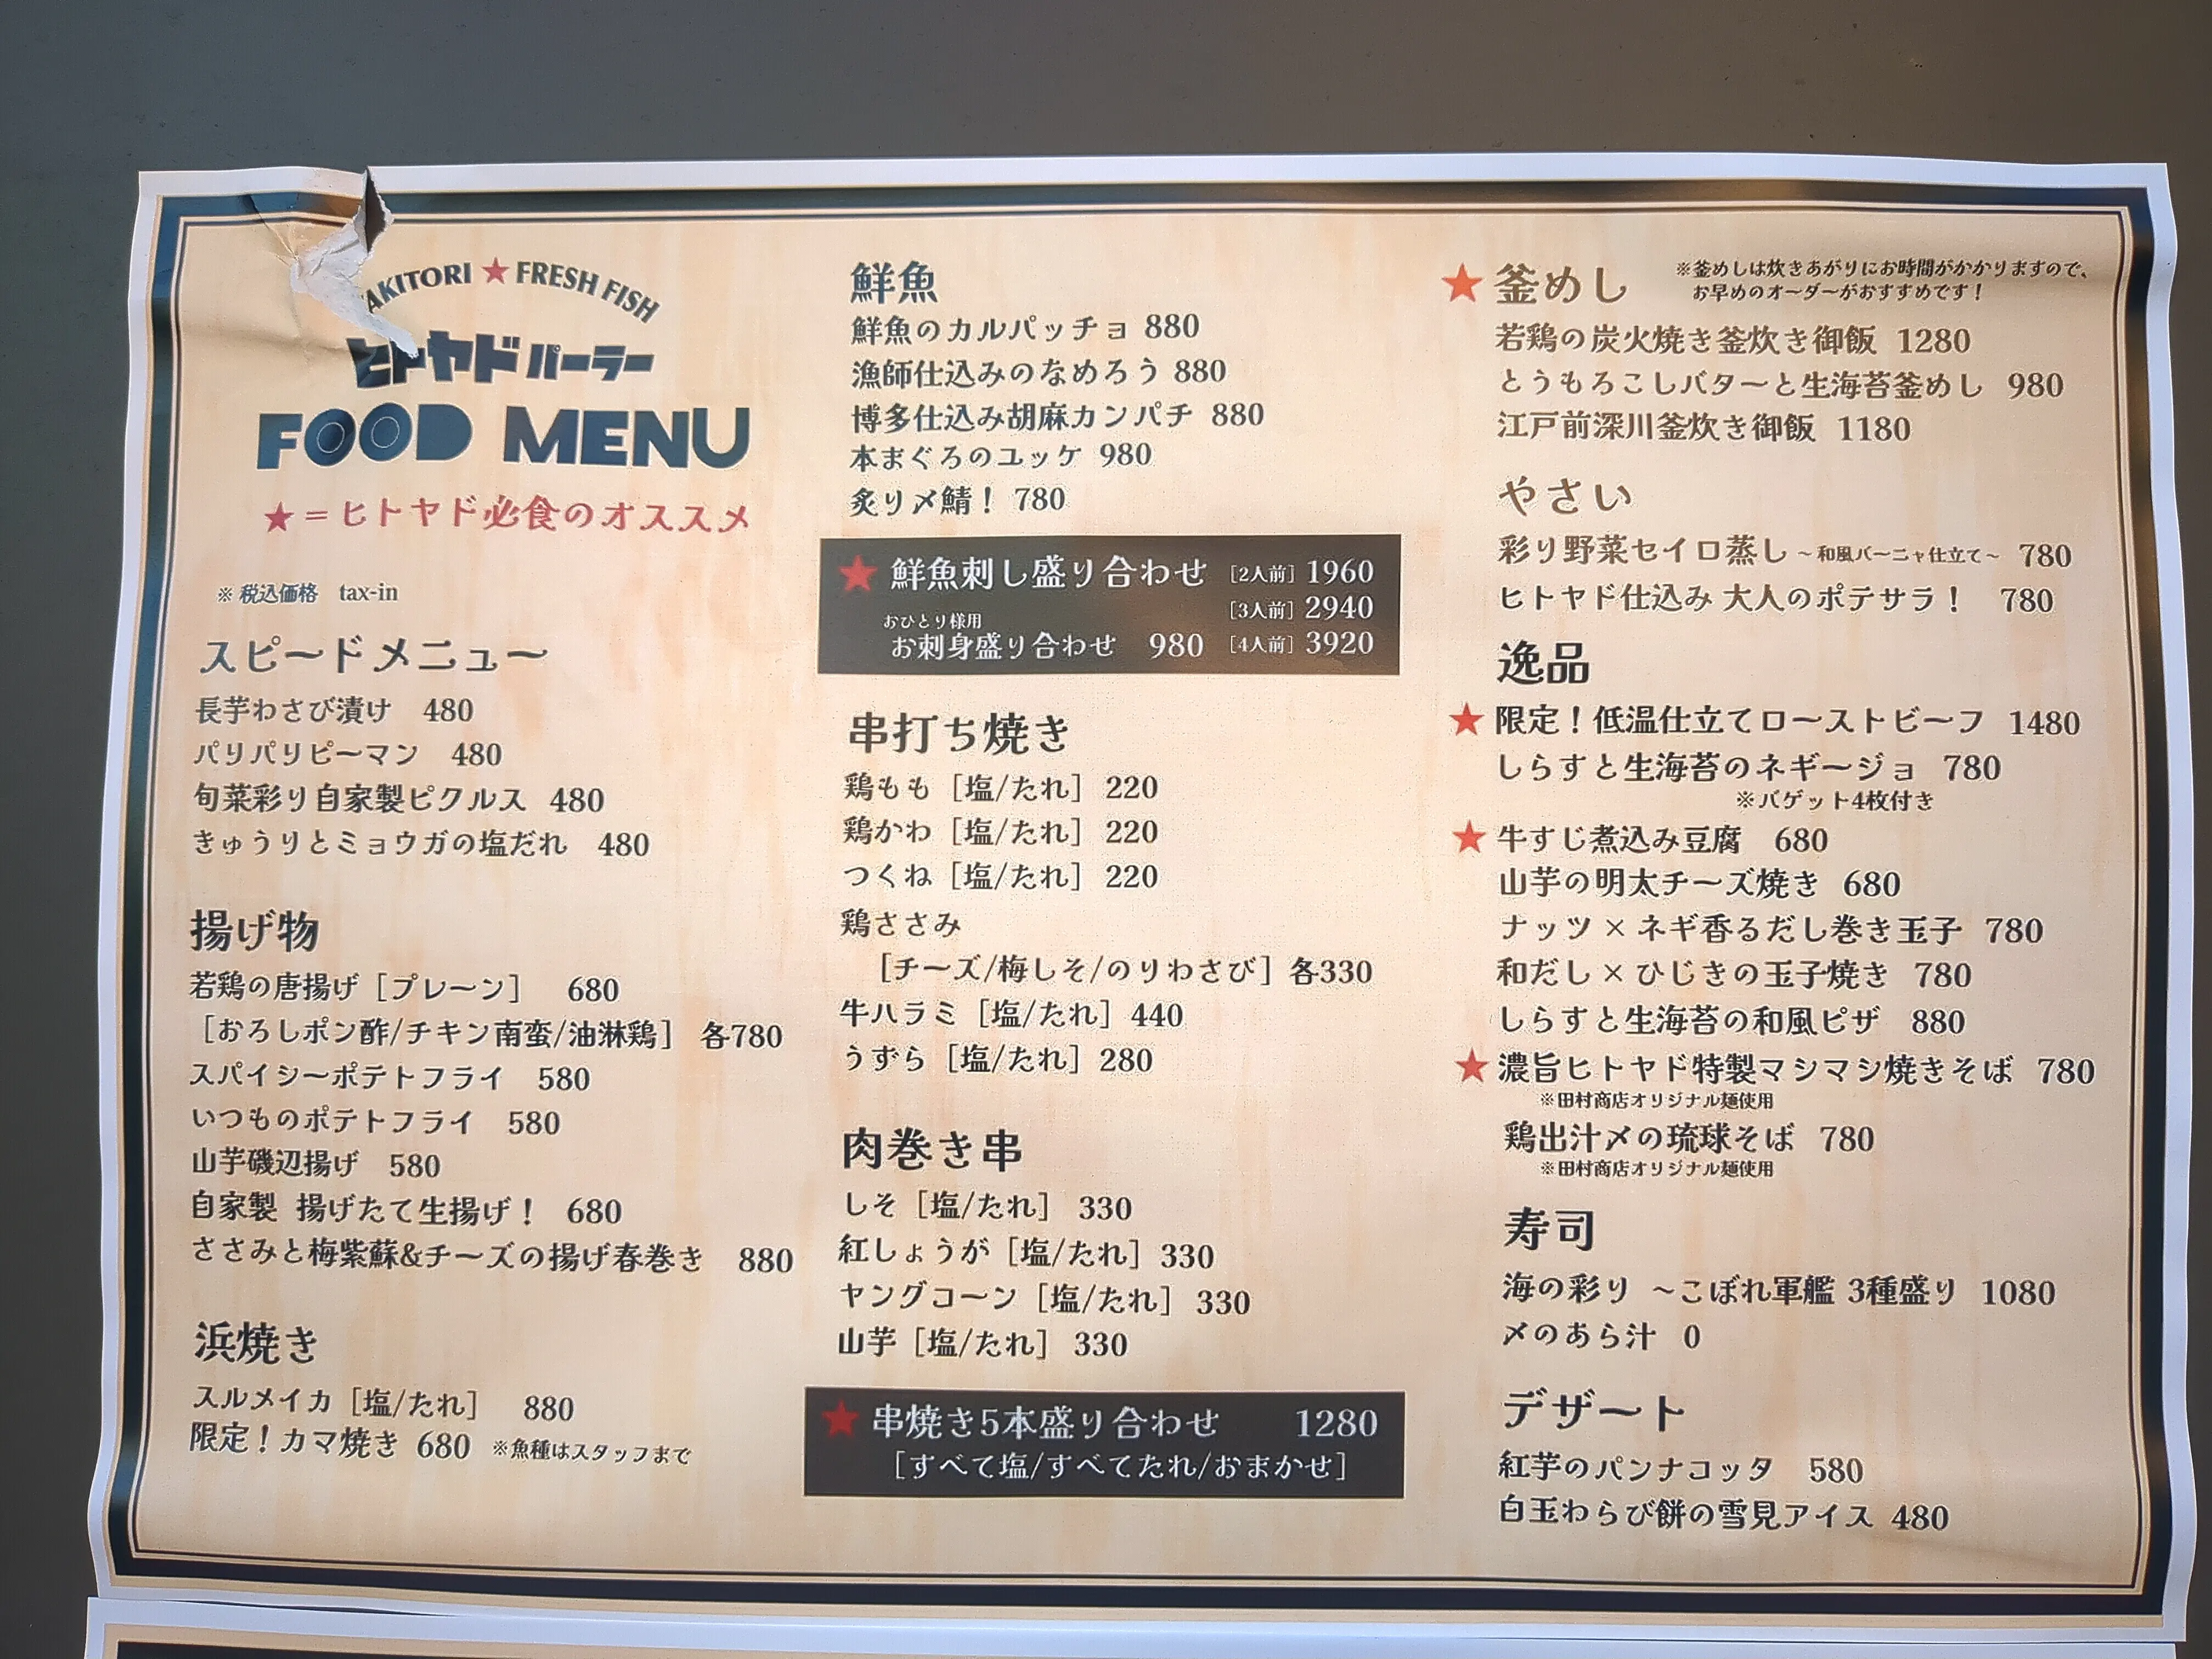 AKITORI ★ FRESH FISH
ヒトヤドパーラー
FOOD MENU
★=ヒトヤド必食のオススメ
※税込価格 tax-in
スピードメニュー
長芋わさび漬け 480
パリパリピーマン 480
旬菜彩り自家製ピクルス 480
きゅうりとミョウガの塩だれ 480
揚げ物
若鶏の唐揚げ［プレーン］ 680
［おろしポン酢/チキン南蛮/油淋鶏］ 各780
スパイシーポテトフライ 580
いつものポテトフライ 580
山芋磯辺揚げ 580
自家製 揚げたて生揚げ！ 680
ささみと梅紫蘇&チーズの揚げ春巻き 880
浜焼き
スルメイカ［塩/たれ］ 880
限定！カマ焼き 680 ※魚種はスタッフまで
鮮魚
鮮魚のカルパッチョ 880
漁師仕込みのなめろう 880
博多仕込み胡麻カンパチ 880
本まぐろのユッケ 980
炙り〆鯖！ 780
★ 鮮魚刺し盛り合わせ ［2人前］1960
［3人前］2940
おひとり様用
お刺身盛り合わせ 980 ［4人前］3920
串打ち焼き
鶏もも［塩/たれ］220
鶏かわ［塩/たれ］220
つくね［塩/たれ］220
鶏ささみ
［チーズ/梅しそ/のりわさび］各330
牛ハラミ［塩/たれ］440
うずら［塩/たれ］280
肉巻き串
しそ［塩/たれ］ 330
紅しょうが［塩/たれ］330
ヤングコーン［塩/たれ］ 330
山芋［塩/たれ］ 330
★ 串焼き5本盛り合わせ 1280
［すべて塩/すべてたれ/おまかせ］
★ 釜めし ※釜めしは炊きあがりにお時間がかかりますので、
お早めのオーダーがおすすめです！
若鶏の炭火焼き釜炊き御飯 1280
とうもろこしバターと生海苔釜めし 980
江戸前深川釜炊き御飯 1180
やさい
彩り野菜セイロ蒸し～和風バーニャ仕立て～ 780
ヒトヤド仕込み 大人のポテサラ！ 780
逸品
★ 限定！低温仕立てローストビーフ 1480
しらすと生海苔のネギージョ 780
※バゲット4枚付き
★ 牛すじ煮込み豆腐 680
山芋の明太チーズ焼き 680
ナッツ×ネギ香るだし巻き玉子 780
和だし×ひじきの玉子焼き 780
しらすと生海苔の和風ピザ 880
★ 濃旨ヒトヤド特製マシマシ焼きそば 780
※田村商店オリジナル麺使用
鶏出汁〆の琉球そば 780
※田村商店オリジナル麺使用
寿司
海の彩り ～こぼれ軍艦 3種盛り 1080
〆のあら汁 0
デザート
紅芋のパンナコッタ 580
白玉わらび餅の雪見アイス 480